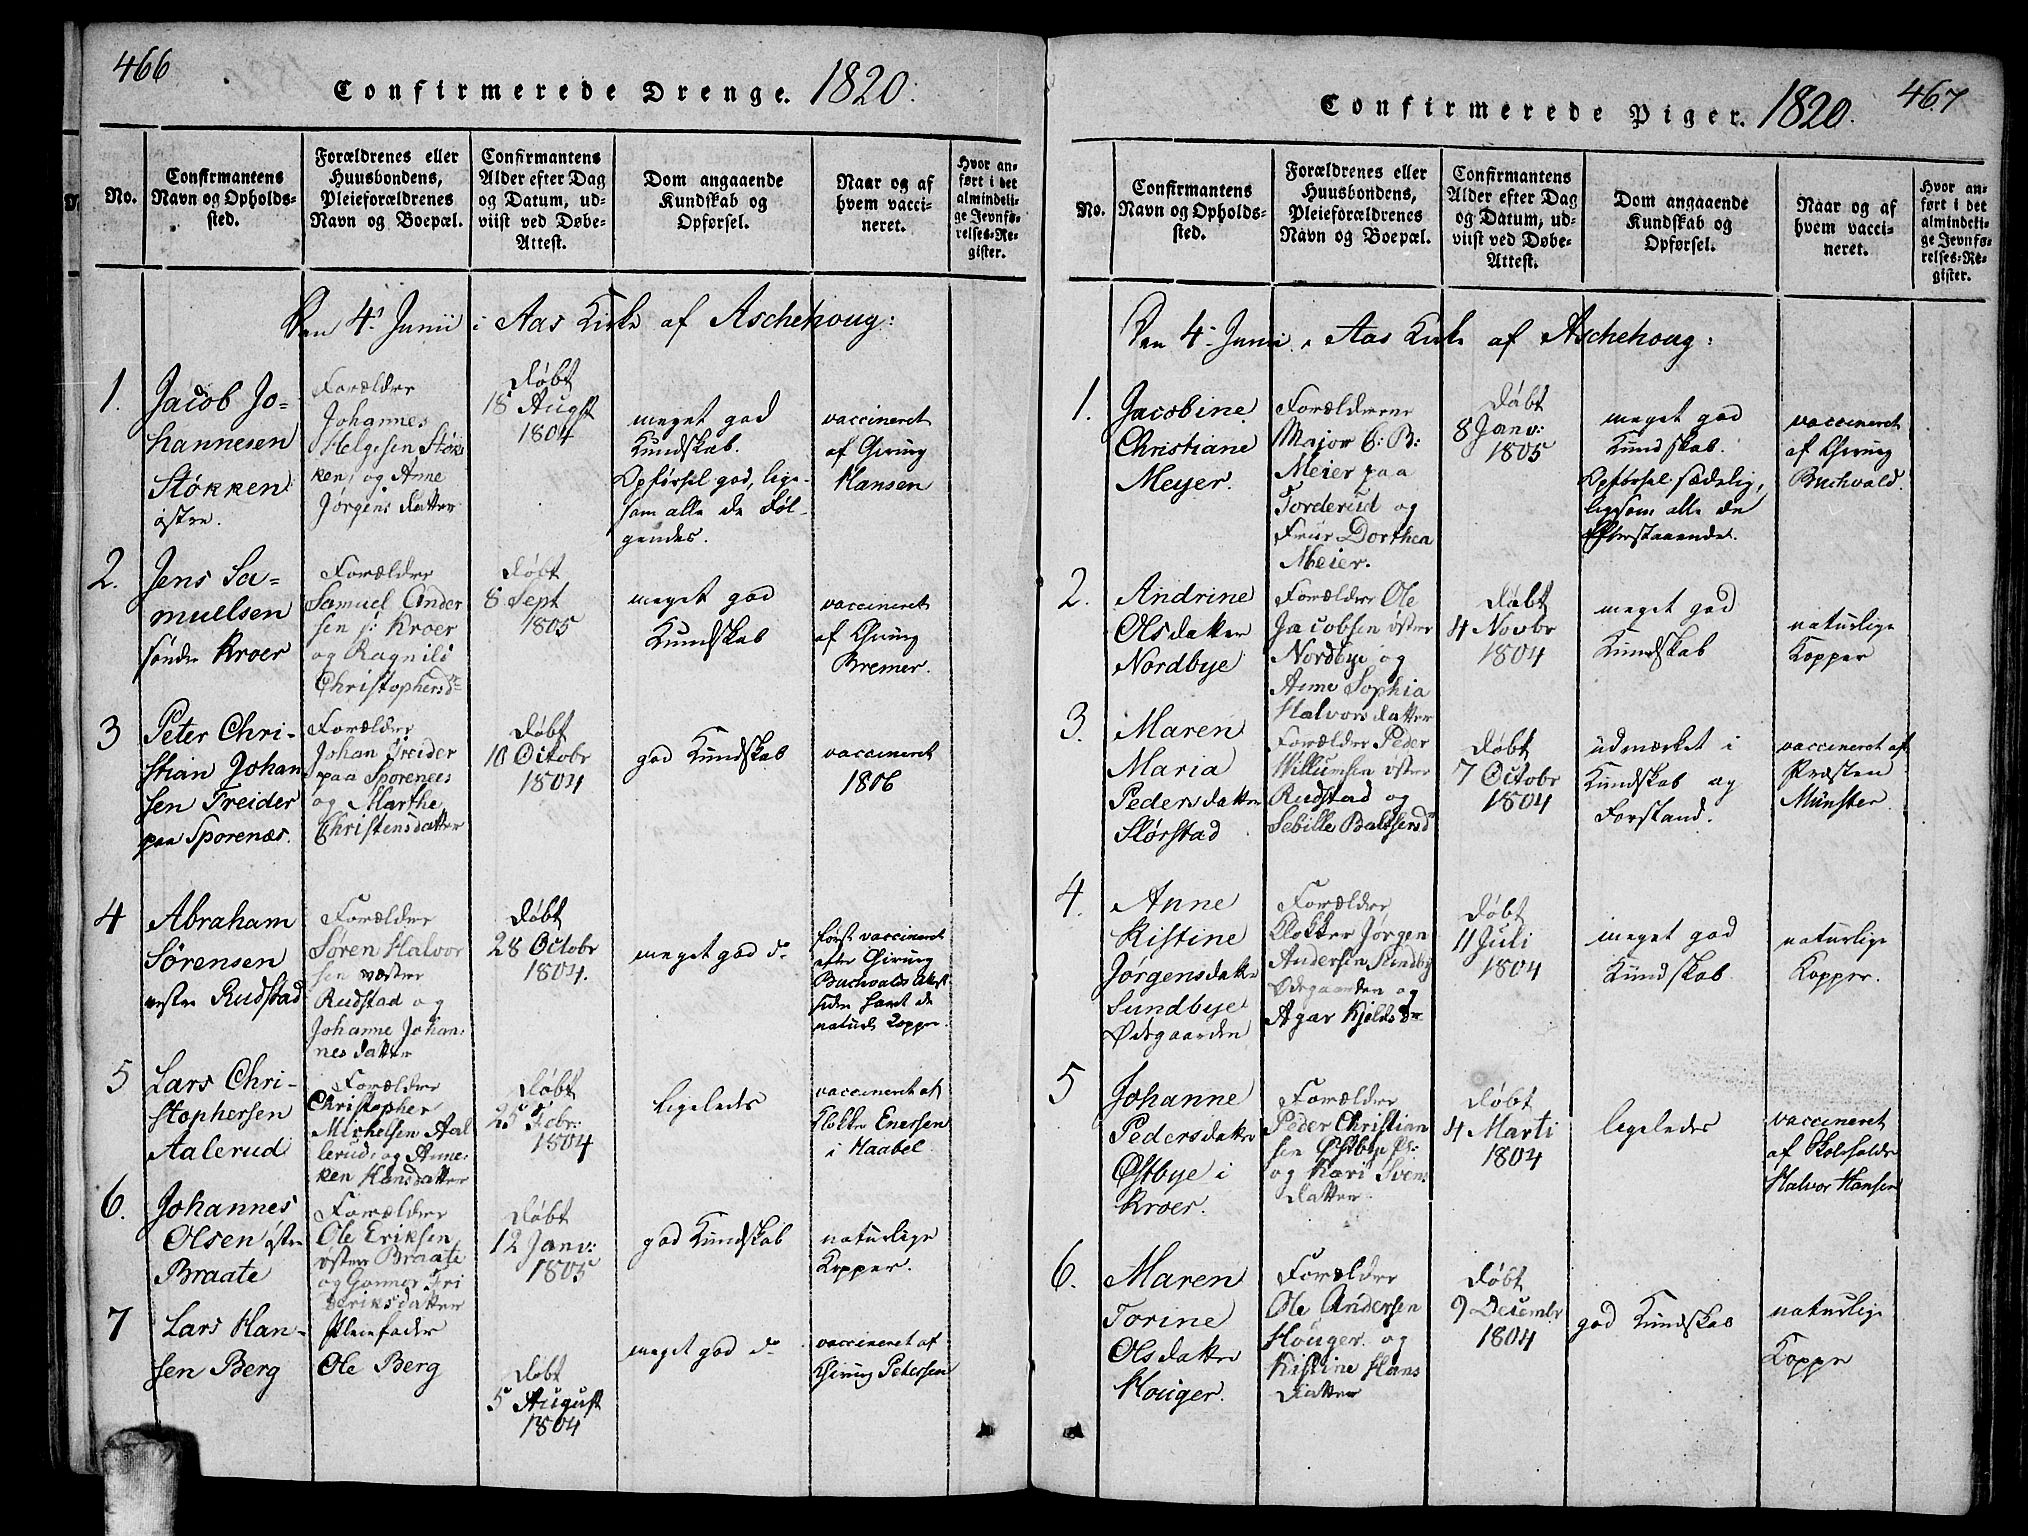 466
Confirmerede Drenge. 1820.
No.
Confirmantens
Navn og Opholds-
sted.
Forældrenes eller
Huusbondens,
Pleieforældrenes
Navn og Boepæl.
Confirmantens
Alder efter Dag
og Datum, ud-
viist ved Døbe-
Attest.
Dom angaaende
Kundskab og
Opførsel.
Naar og af
hvem vacci-
neret.
Hvor an-
ført i det
almindeli-
ge Jevnfø-
relses-Re-
gister.
Den 4de Junii i Aas Kirke af Aschehoug:
1.
Jacob Jo-
hannesen
Støkken
østre.
Forældre
Johannes
Helgesen Støk
ken, og Anne
Jørgens datter
døbt
18 Augst
1804
meget god
Kundskab.
Opførsel god, lige-
som alle de Føl-
gendes.
vaccineret
af Chirurg
Hansen
2.
Jens Sa-
muelsen
søndre Kroer
Forældre
Samuel Ander
sen s: Kroer
og Ragnild
Christophersd
døbt
8 Sept
1805
meget god
Kundskab
vaccineret
af Chirurg
Bremer.
3
Peter Chri-
stian Johan
sen Freider
paa Sporenæs.
Forældre
Johan Freider
paa Sporenees
og Marthe
Christensdatter
døbt
10 Octobr
1804
god Kundskab
vaccineret
1806
4
Abraham
Sørensen
vestre Rudstad
Forældre
Søren Halvor
sen væstre
Rudstad og
Johanne Johan
nes datter
døbt
28 Octobr
1804.
meget god do
først vaccineret
efter Chirurg
Buchvalds Attest
siden havt de
naturl. Kopper.
5
Lars Chri-
stophersen
Aalerud
Forældre
Christopher
Michelsen Aal
lerud og Anne
ken Hansdatter
døbt
25 Febr:
1804
ligeledes
vaccineret af
Klokker Enersen
i Haabel
6.
Johannes
Olsen østre
Braate
Forældre
Ole Eriksen
østre Braate
og Gunnor Fri
deriksdatter
døbt
12 Janv:
1805
god Kundskab
naturlige
Kopper.
7
Lars Han-
sen Berg
Pleiefader
Ole Berg
døbt
5 August
1804
meget god do
vaccineret af
Chirurg Petersen
467
Confirmerede Piger. 1820.
No.
Confirmantens
Navn og Opholds-
sted.
Forældrenes eller
Huusbondens,
Pleieforældrenes
Navn og Boepæl.
Confirmantens
Alder efter Dag
og Datum, ud-
viist ved Døbe-
Attest.
Dom angaaende
Kundskab og
Opførsel.
Naar og af
hvem vacci-
neret.
Hvor an-
ført i det
almindeli-
ge Jevnfø-
relses-Re-
gister.
Den 4de Junii i Aas Kirke af Aschehoug:
1.
Jacobine
Christiane
Meyer.
Forælderne
Major C: B:
Meier paa
Torderud og
Frue Dorthea
Meier.
døbt
8 Janv:
1805
meget god
Kundskab.
Opførsel sædelig,
ligesom alle de
Efterstaaendes.
vaccineret
af Chirurg
Buchvald.
2.
Andrine
Olsdatter
Nordbye
Forældre Ole
Jacobsen østre
Nordbye og
Anne Sophia
Halvors datter
døbt
4 Novbr
1804
meget god
Kundskab
naturlige
Kopper
3.
Maren
Maria
Pedersdatter
Slørstad
Forældre Peder
Willumsen østre
Rudstad og
Sebille Baltsersd
døbt
7 Octobr
1804
udmærket i
Kundskab og
Forstand.
vaccineret af
Præsten
Münster.
4.
Anne
Kistine
Jørgensdatter
Sundbye
Ødegaarden
Forældre
Klokker Jørgen
Andersen Sundby
Ødegaarden og
Agar Kjeldsdr
døbt
11 Juli
1804
meget god
Kundskab.
naturlige
Kopper.
5
Johanne
Pedersdatter
Østbye i
Kroer.
Forældre
Peder Christian
sen Østbye
og Kari Svens
datter.
døbt
4 Marti
1804
ligeledes
vaccineret
af Skoleholder
Halvor Hansen
6.
Maren
Torine
Olsdatter
Houger.
Forældre
Ole Andersen
Houger og
Kistine Hans
datter
døbt
9 Decembr
1804
god Kundskab
naturlige
Kopper